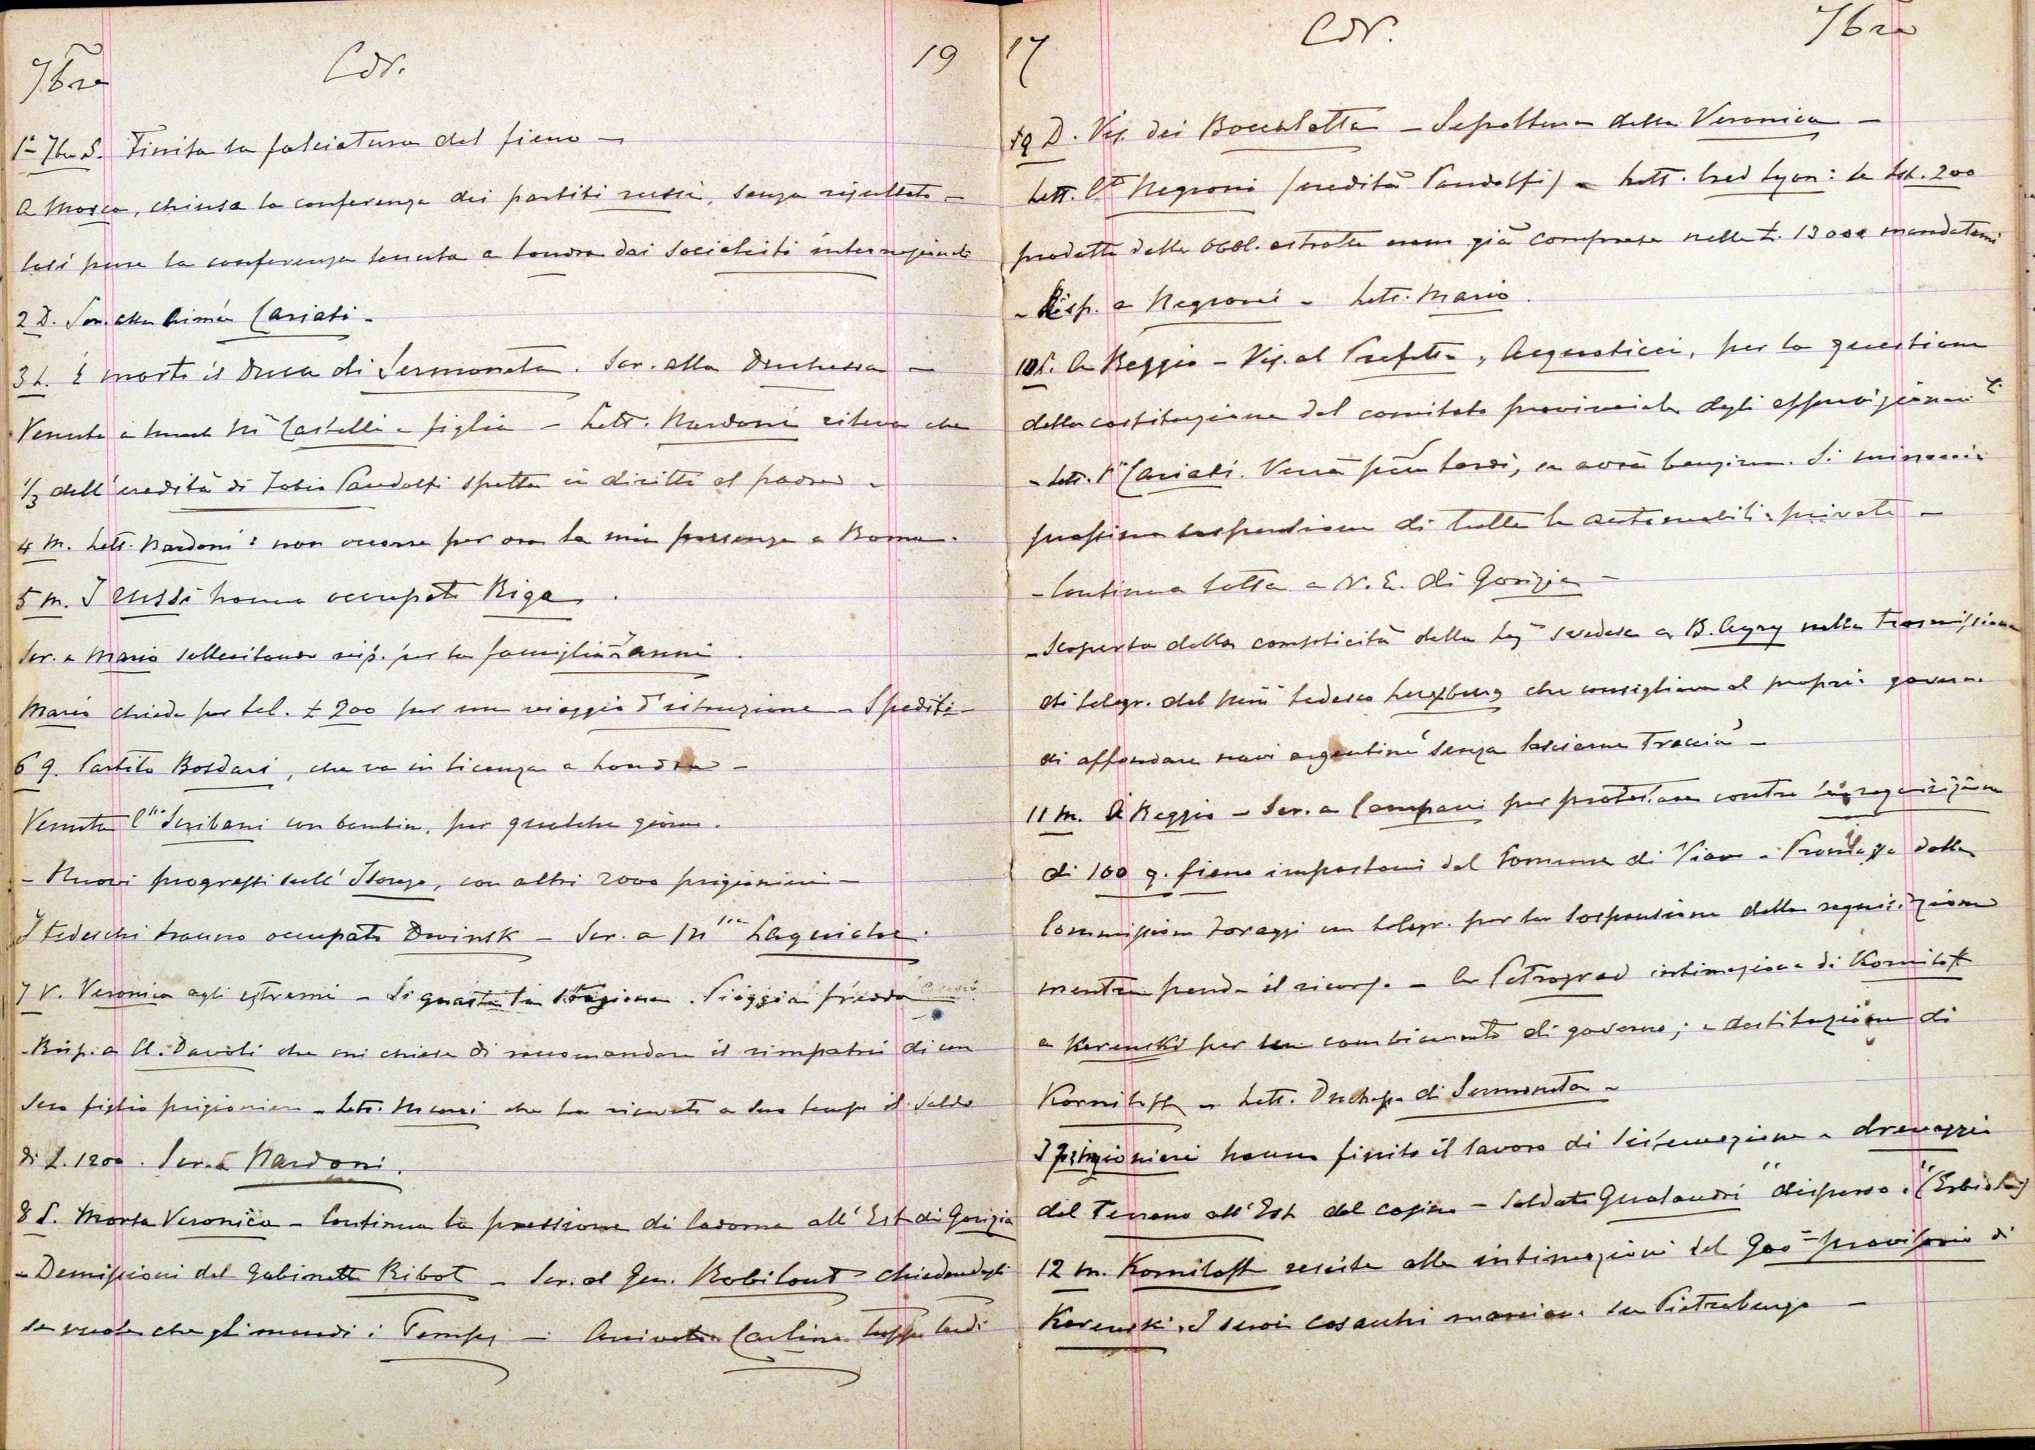 7bre CdV. 19
1° 7bre S. Finita la falciatura del fieno –
A Mosca, chiusa la conferenza dei partiti russi, senza risultato –
Così pure la conferenza tenuta a Londra dai socialisti internazionali
2 D. Scr. alla Cariati –
3 L. È morto il Duca di Sermoneta. Scr. alla Duchessa –
Venute a Castelli e figlia – Lett. Nardoni che
1/3 dell'eredità di Pandolfi spetta in diritto al padre –
4 M. Lett. Nardoni: non occorre per ora la mia presenza a Roma.
5 M. I russi hanno occupato Riga.
Scr. a Mario sollecitando risp. per la famiglia
Mario chiede per tel. £ 200 per un viaggio d'istruzione – Spediti –
6 G. Partito Bosdari, che va in licenza a Londra –
Venuta Scribani con bambin. per qualche giorno.
– Nuovi progressi sull'Isonzo, con altri 2000 prigionieri –
I tedeschi hanno occupato Dwinsk – Scr. a Laguiche.
7 V. Veronica agli estremi – Si guasta la stagione. Pioggia, freddo
– Risp. a Davoli che mi chiese di raccomandare il rimpatrio di un
suo figlio prigioniero – Lett. che ha ricevuto a suo tempo il saldo
di £. 1200. Scr. a Nardoni.
8 S. Morta Veronica – Continua la pressione di Cadorna all'Est di Gorizia
– Demissioni del gabinetto Ribot – Scr. al Gen. Robilant chiedendogli
se vuole che gli mandi il Temps – Arrivata Carlina troppo tardi
17 CdV. 7bre
9 D. Vis. dei Bocchialotta – Sepoltura della Veronica –
Lett. Negroni (eredità Pandolfi) – Lett. Cred Lyon: le 200
prodotto delle obbl. estratte erano già comprese nelle £. 13000 mandatemi
– Risp. a Negroni – Lett. Mario.
10 L. A Reggio – Vis. al Prefetto, Acquaticci, per la questione
della costituzione del comitato provinciale degli approvvigionam.ti
– Lett. Cariati. Verrà più tardi, se avrà benzina. Si minaccia
prossima sospensione di tutte le automobili private –
– Continua lotta a N. E. di Gorizia –
– Scoperta della complicità della Leg. svedese a B. Ayres nella trasmissione
di telegr. del min. tedesco Luxburg che consigliava al proprio governo
di affondare navi argentine "senza lasciarne traccia" –
11 M. A Reggio – Scr. a Campani per protestare contro la requisizione
di 100 q. fieno impostami dal Comune di Viano – della
Commission foraggi un telegr. per la sospensione della requisizione
mentre pende il ricorso – A Petrograd intimazione di Korniloff
a Kerenski per un cambiamento di governo; e destituzione di
Korniloff – Lett. Duchessa di Sermoneta –
I prigionieri hanno finito il lavoro di sistemazione e drenaggio
del terreno all'Est del casino – Soldato Gualandri "disperso" (Erbiola)
12 M. Korniloff resiste alle intimazioni del Gov.° provvisorio di
Kerenski. I suoi cosacchi marciano su Pietroburgo –